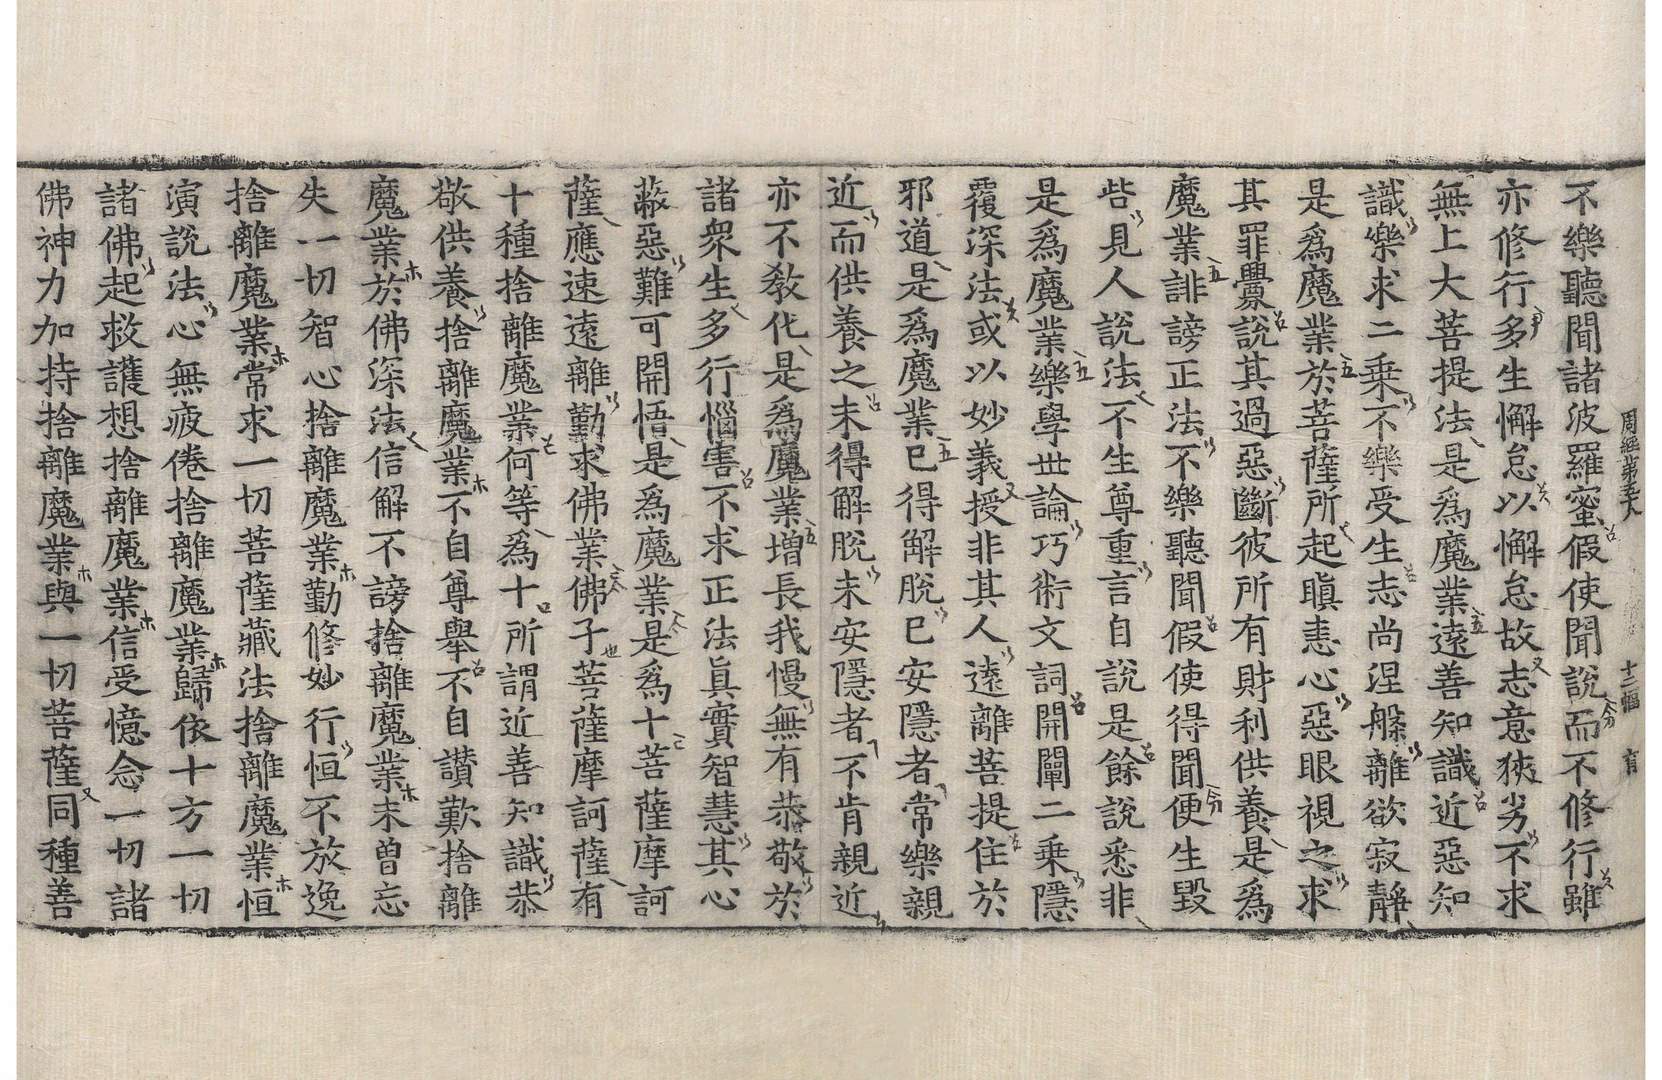 周經第五十八 十二幅 育
不樂聽聞諸波羅蜜假使聞說而不修行雖
亦修行多生懈怠以懈怠故志意狹劣不求
無上大菩提法是爲魔業遠善知識近惡知
識樂求二乗不樂受生志尚涅槃離欲寂靜
是爲魔業於菩薩所起瞋恚心惡眼視之求
其罪舋說其過惡斷彼所有財利供養是爲
魔業誹謗正法不樂聽聞假使得聞便生毀
呰見人說法不生尊重言自說是餘說悉非
是爲魔業樂學世論巧術文詞開闡二乗隱
覆深法或以妙義授非其人遠離菩提住於
邪道是爲魔業已得解脫已安隱者常樂親
近而供養之未得解脫未安隱者不肯親近
亦不敎化是爲魔業增長我慢無有恭敬於
諸衆生多行惱害不求正法眞實智慧其心
蔽惡難可開悟是爲魔業是爲十菩薩摩訶
薩應速遠離勤求佛業佛子菩薩摩訶薩有
十種捨離魔業何等爲十所謂近善知識恭
敬供養捨離魔業不自尊舉不自讚歎捨離
魔業於佛深法信解不謗捨離魔業未曾忘
失一切智心捨離魔業勤修妙行恒不放逸
捨離魔業常求一切菩薩藏法捨離魔業恒
演說法心無疲倦捨離魔業歸依十方一切
諸佛起救護想捨離魔業信受憶念一切諸
佛神力加持捨離魔業與一切菩薩同種善